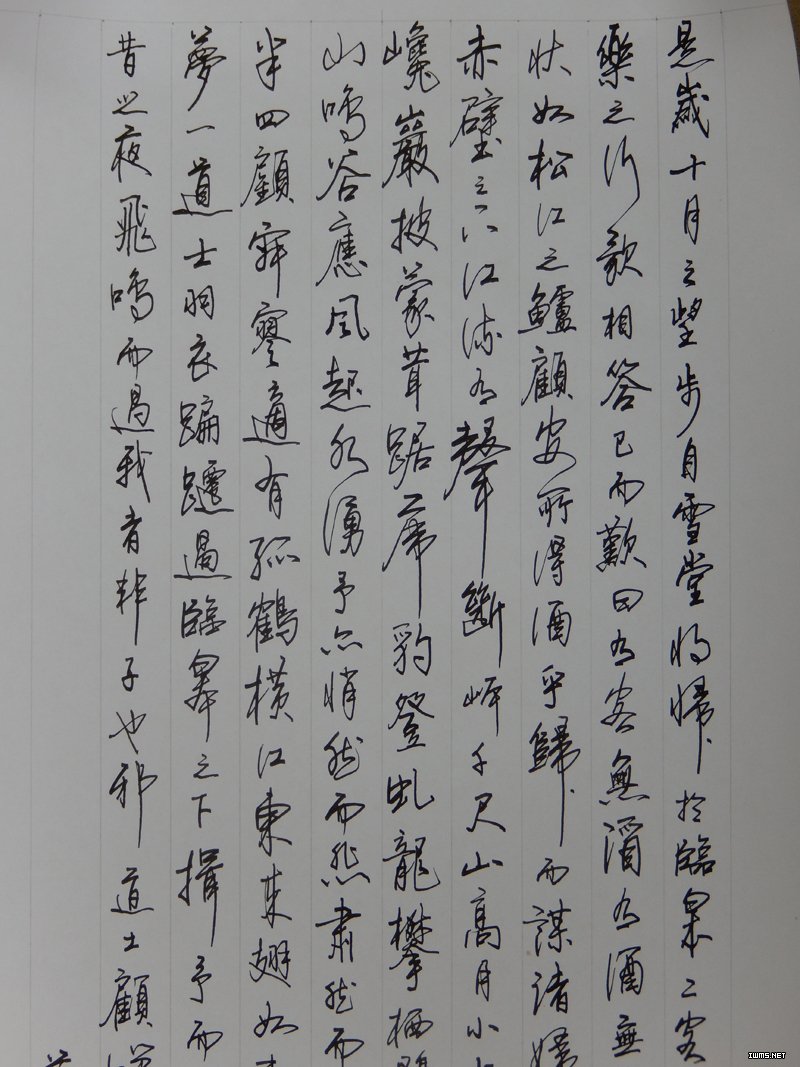 是歲十月之望步自雪堂將歸於臨皋二客
樂之行歌相答已而歎曰有客無酒有酒無
狀如松江之鱸顧安所得酒乎歸而謀諸婦
赤壁之下江流有聲斷岸千尺山高月小
巉巖披蒙茸踞虎豹登虬龍攀栖
山鳴谷應風起水湧予亦悄然而悲肅然而
半四顧寂寥適有孤鶴橫江東來翅如
夢一道士羽衣蹁躚過臨皋之下揖予而
昔之夜飛鳴而過我者非子也邪道士顧
IWMS.NET